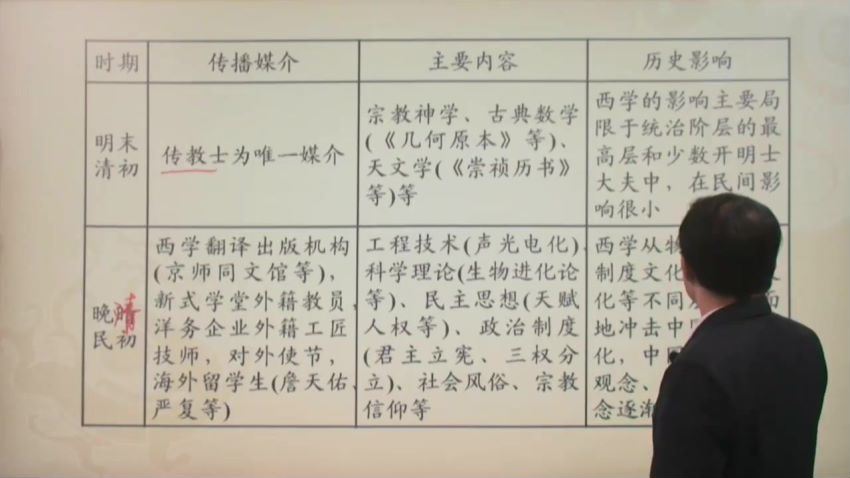 时期
传播媒介
主要内容
历史影响
明末
清初
传教士为唯一媒介
宗教神学、古典数学
(《几何原本》等)、
天文学(《崇祯历书》
等)等
西学的影响主要局
限于统治阶层的最
高层和少数开明士
大夫中，在民间影
响很小
晚清
民初
西学翻译出版机构
(京师同文馆等)，
新式学堂外籍教员、
洋务企业外籍工匠
技师，对外使节，
海外留学生(詹天佑、
严复等)
工程技术(声光电化)、
科学理论(生物进化论
等)、民主思想(天赋
人权等)、政治制度
(君主立宪、三权分
立)、社会风俗、宗教
信仰等
西学从物
制度文化
化等不同
地冲击中
化，中
观念、
念逐渐